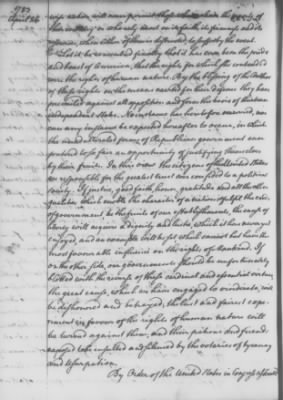 1783
April 26
nation will never permit those who
Let it be remembered finally that it has ever been the pride
and boast of America, that the rights for which she contended
were the rights of human nature. By the blessing of the Author
of these rights on the means exerted for their defence they have
prevailed against all opposition and form the basis of thirteen
independent States. No instance has heretofore occurred, nor
can any instance be expected hereafter to occur, in which
the unadulterated forms of Republican government can
pretend to so fair an opportunity of justifying themselves
by their fruits. In this view the citizens of the United States
are responsible for the greatest trust ever confided to a political
society. If justice, good faith, honor, gratitude and all the other
qualities which enoble the character of a nation and fulfil the ends
of government be the fruits of our establishments, the cause of
liberty will acquire a dignity and lustre, which it has never yet
enjoyed, and an example will be set which cannot but have the
most favourable influence on the rights of Mankind. If
on the other side, our governments should be unfortunately
blotted with the reverse of these cardinal and essential virtues,
the great cause, which we have engaged to vindicate, will
be dishonored and betrayed; the last and fairest experiment
in favour of the rights of human nature will
be turned against them, and their patrons and friends
exposed to be insulted and silenced by the votaries of tyranny
and Usurpation.
By Order of the United States in Congress assembled